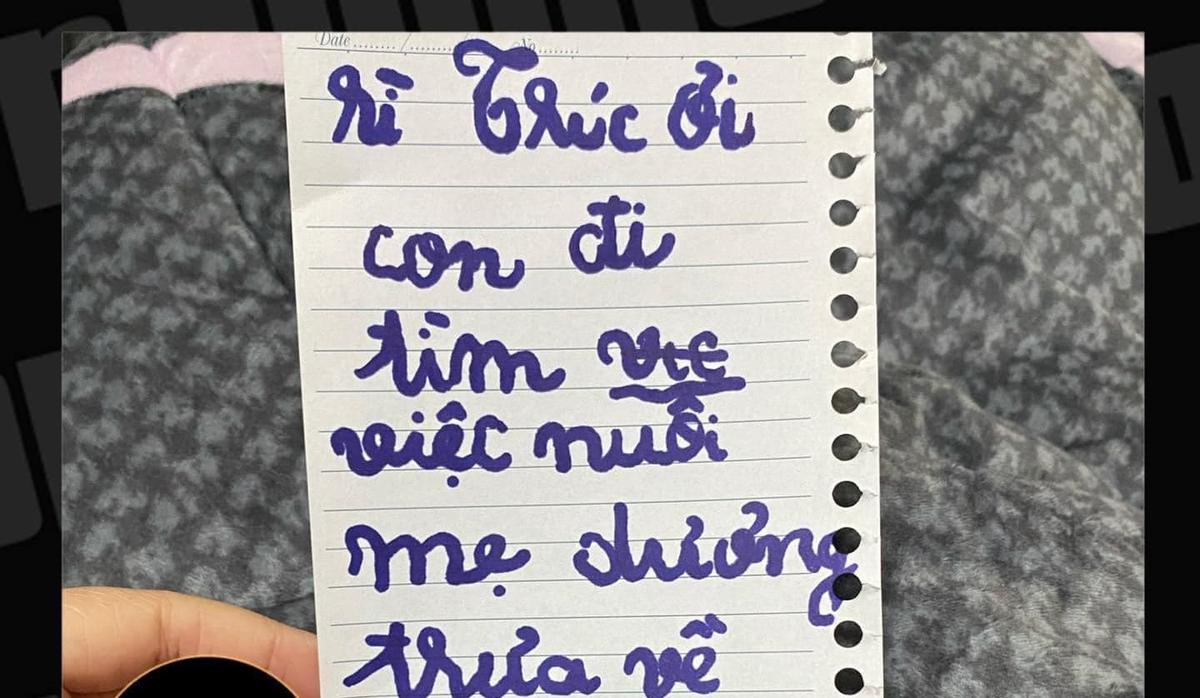 Date......./......./....... No.......
Thúc ơi
con đi
tìm
việc nuôi
mẹ dương
trưa về